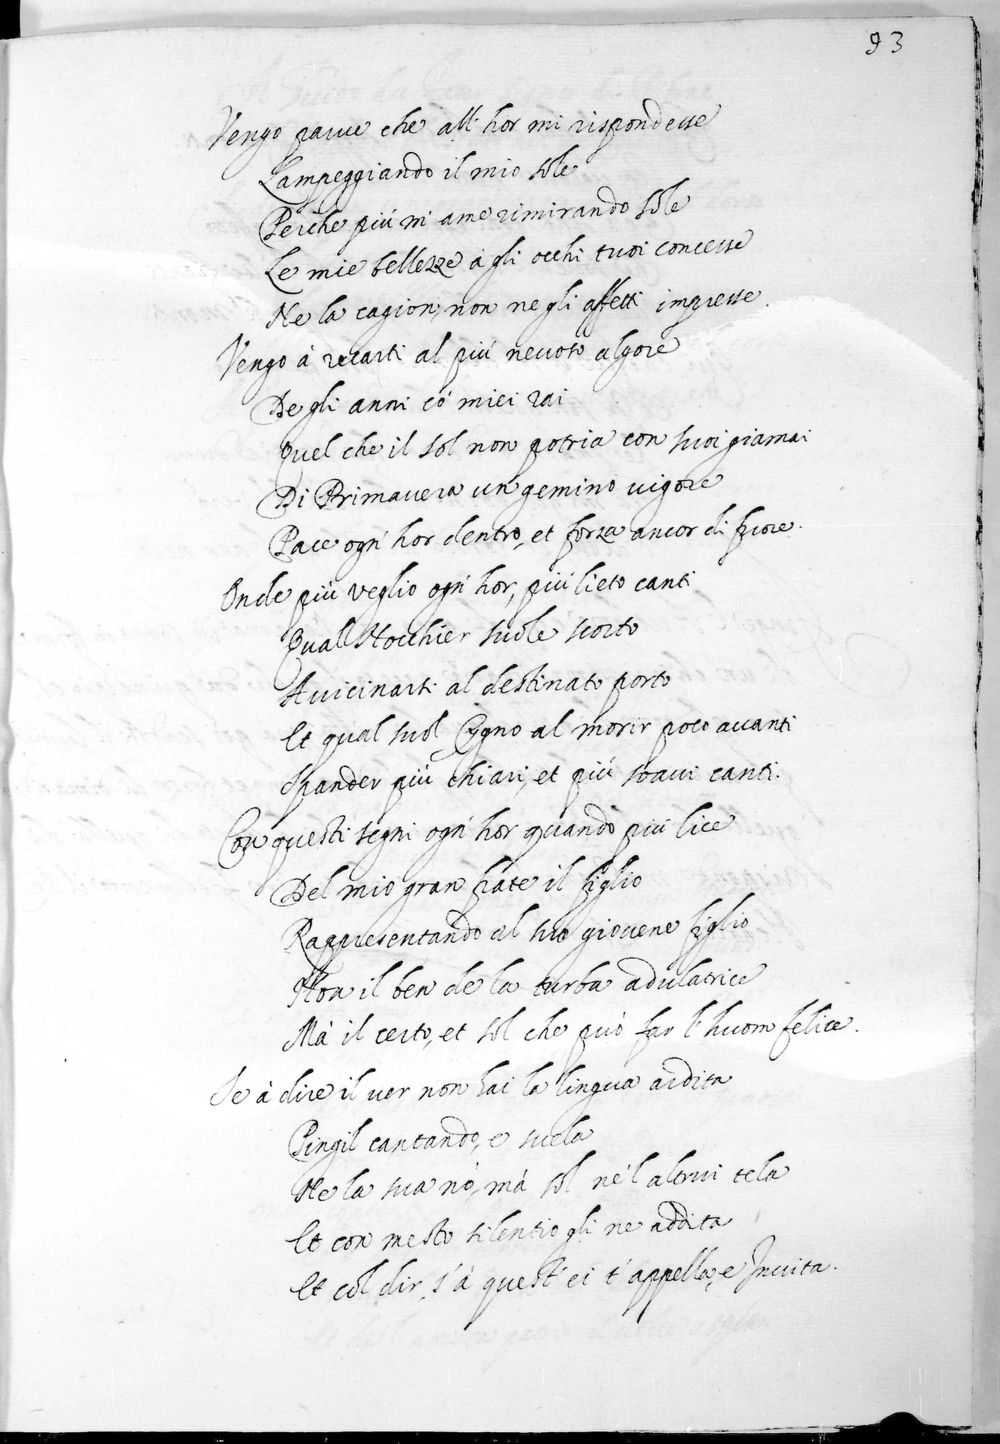 93
Vengo parue che all'hor mi rispondesse
Lampeggiando il mio sole
Perche più m'ame rimirando sole
Le mie bellezze à gli occhi tuoi concesse
Ne la cagion, non ne gli affetti impresse.
Vengo à recarti al più neuoso algore
De gli anni co' miei rai
Quel che il sol non potria con suoi giamai
Di Primauera un gemino uigore
Pace ogn'hor dentro, et forza ancor di fuore.
Onde più veglio ogn'hor, più lieto canti
Qual Nocchier suole scorto
Auicinarsi al destinato porto
Et qual suol Cigno al morir poco auanti
Spander più chiari, et più soaui canti.
Con questi segni ogn'hor quando più lice
Del mio gran frate il figlio
Rappresentando al suo giouene figlio
Non il ben de la turba adulatrice
Mà il certo, et sol che può far l'huom felice.
Se à dire il uer non hai la lingua ardita
Pingil cantando, e suela
Ne la sua nò, mà sol ne l'altrui tela
Et con mesto silentio gli ne addita
Et col dir, s'à quest' ei t'appella, e Inuita.